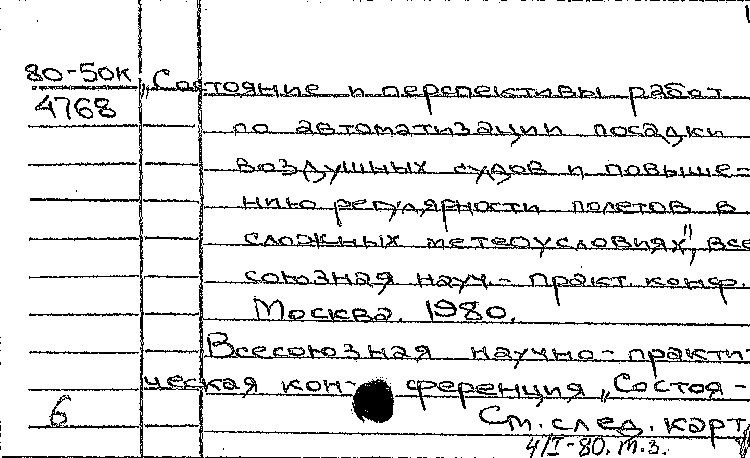 80-50к „Состояние и перспективы работ
4768
по автоматизации посадки
воздушных судов и повыше=
нию регулярности полетов в
сложных метеоусловиях", Все
союзная науч.- практ. конф.
Москва. 1980.
Всесоюзная научно-практи-
ческая конференция „Состоя-
6
См. след. карт
4/I-80. т.з.